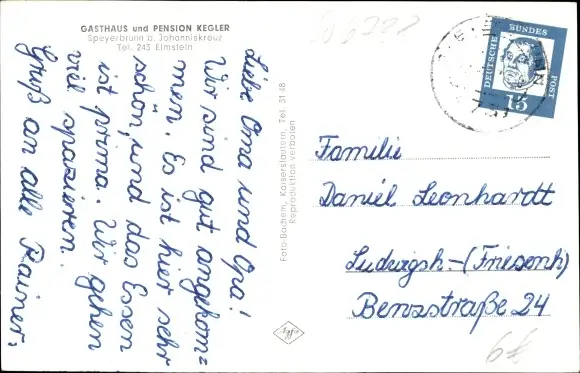 GASTHAUS und PENSION KEGLER
Speyerbrunn b. Johanniskreuz
Tel. 245 Elmstein
Liebe Oma und Opa!
Wir sind gut angekom=
men. Es ist hier sehr
schön, und das Essen
ist prima. Wir gehen
viel spazieren.
Gruß an alle Rainer.
Foto-Bachem, Kaiserslautern, Tel. 3148
Reproduktion verboten
DEUTSCHE BUNDES POST
15
Familie
Daniel Leonhardt
Ludwigsh-(Friesenh)
Benzstraße 24